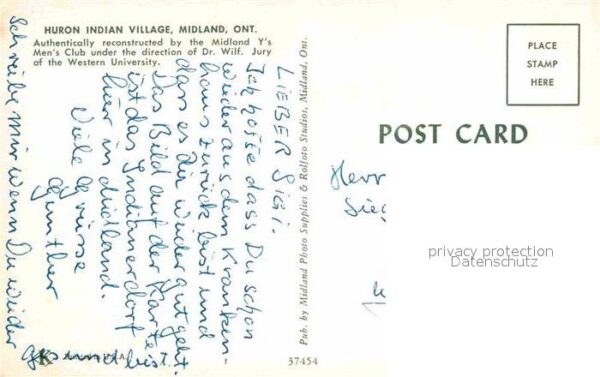 HURON INDIAN VILLAGE, MIDLAND, ONT.
Authentically reconstructed by the Midland Y's
Men's Club under the direction of Dr. Wilf. Jury
of the Western University.
LIEBER SIGI.
Ich hoffe dass Du schon
wieder aus dem Kranken-
haus zurück bist und
dass es Dir wieder gut geht.
Das Bild auf der Karte
ist das Indianerdorf
hier in Midland.
Viele Grüsse
Günther
Schreibe mir wenn Du wieder
gesund bist!
Pub. by Midland Photo Supplies & Rolfoto Studios, Midland, Ont.
37454
PLACE
STAMP
HERE
POST CARD
Herr
Sieg
privacy protection
Datenschutz